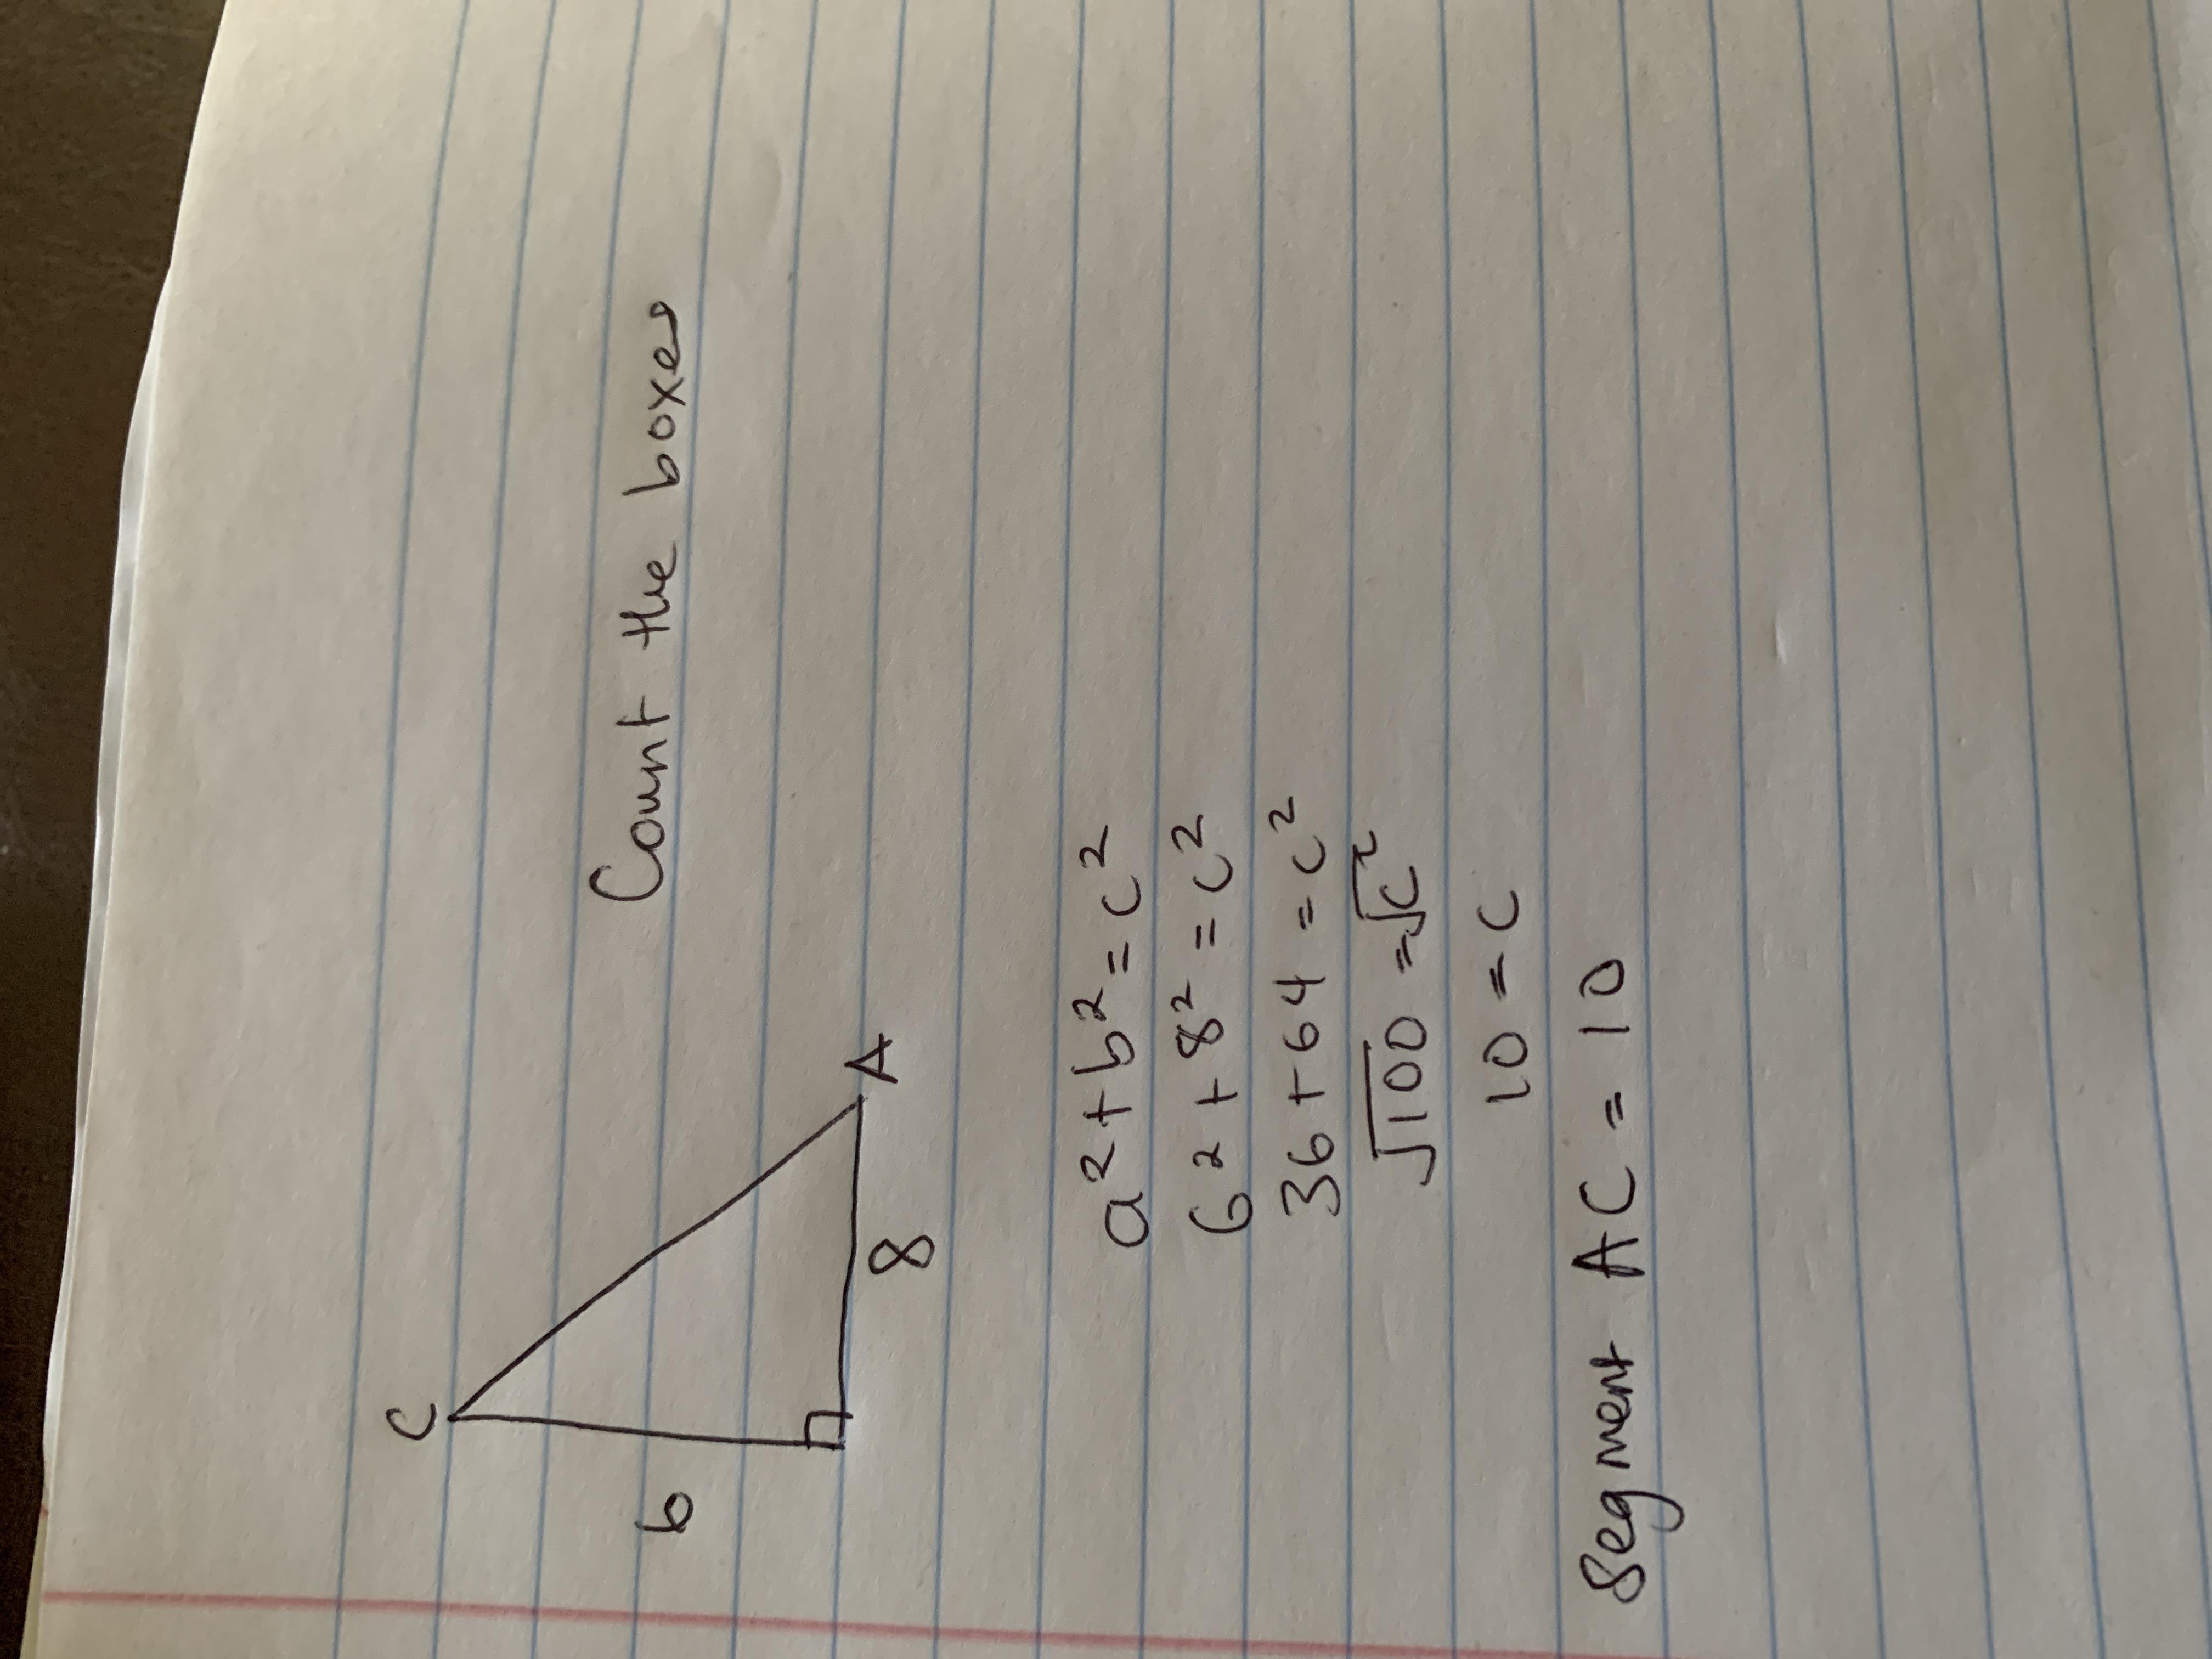 C
Count the boxes
6
A
8
a² + b² = c²
6² + 8² = c²
36 + 64 = c²
√100 = √c²
10 = c
Segment AC = 10